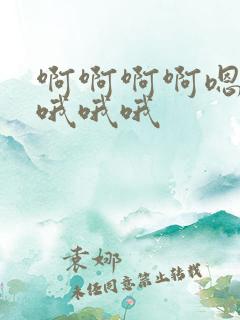 啊啊啊啊嗯
哦哦哦
袁娜
未经同意禁止转载